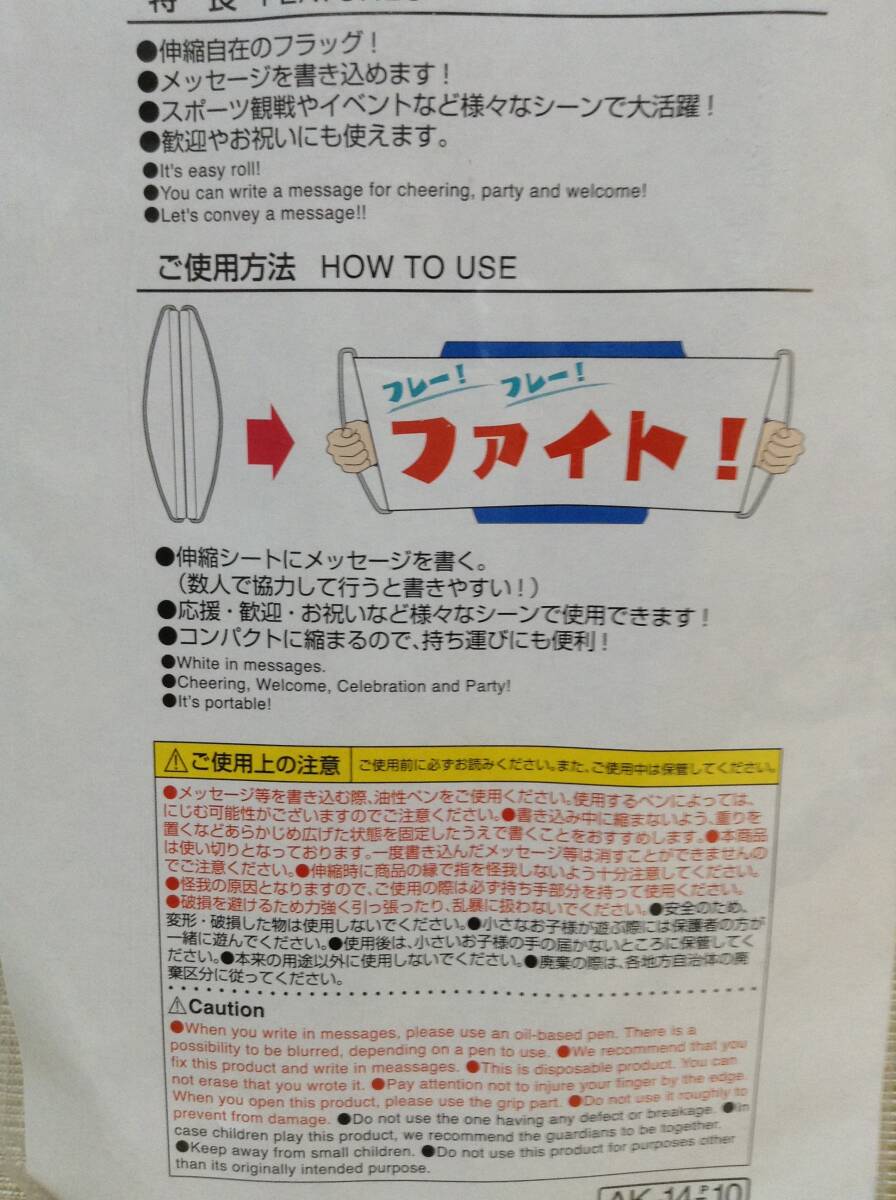 特 長 FEATURES
●伸縮自在のフラッグ！
●メッセージを書き込めます！
●スポーツ観戦やイベントなど様々なシーンで大活躍！
●歓迎やお祝いにも使えます。
●It's easy roll!
●You can write a message for cheering, party and welcome!
●Let's convey a message!!
ご使用方法 HOW TO USE
フレー！ フレー！
ファイト！
●伸縮シートにメッセージを書く。
（数人で協力して行うと書きやすい！）
●応援・歓迎・お祝いなど様々なシーンで使用できます！
●コンパクトに縮まるので、持ち運びにも便利！
●White in messages.
●Cheering, Welcome, Celebration and Party!
●It's portable!
⚠ご使用上の注意 ご使用前に必ずお読みください。また、ご使用中は保管してください。
●メッセージ等を書き込む際、油性ペンをご使用ください。使用するペンによっては、
にじむ可能性がございますのでご注意ください。●書き込み中に縮まないよう、重りを
置くなどあらかじめ広げた状態を固定したうえで書くことをおすすめします。●本商品
は使い切りとなっております。一度書き込んだメッセージ等は消すことができませんの
でご注意ください。●伸縮時に商品の縁で指を怪我しないよう十分注意してください。
●怪我の原因となりますので、ご使用の際は必ず持ち手部分を持って使用ください。
●破損を避けるため力強く引っ張ったり、乱暴に扱わないでください。●安全のため、
変形・破損した物は使用しないでください。●小さなお子様が遊ぶ際には保護者の方が
一緒に遊んでください。●使用後は、小さいお子様の手の届かないところに保管してく
ださい。●本来の用途以外に使用しないでください。●廃棄の際は、各地方自治体の廃
棄区分に従ってください。
⚠Caution
●When you write in messages, please use an oil-based pen. There is a
possibility to be blurred, depending on a pen to use. ●We recommend that you
fix this product and write in meassages. ●This is disposable product. You can
not erase that you wrote it. ●Pay attention not to injure your finger by the edge.
When you open this product, please use the grip part. ●Do not use it roughly to
prevent from damage. ●Do not use the one having any defect or breakage. ●In
case children play this product, we recommend the guardians to be together.
●Keep away from small children. ●Do not use this product for purposes other
than its originally intended purpose.
AK-14-P10